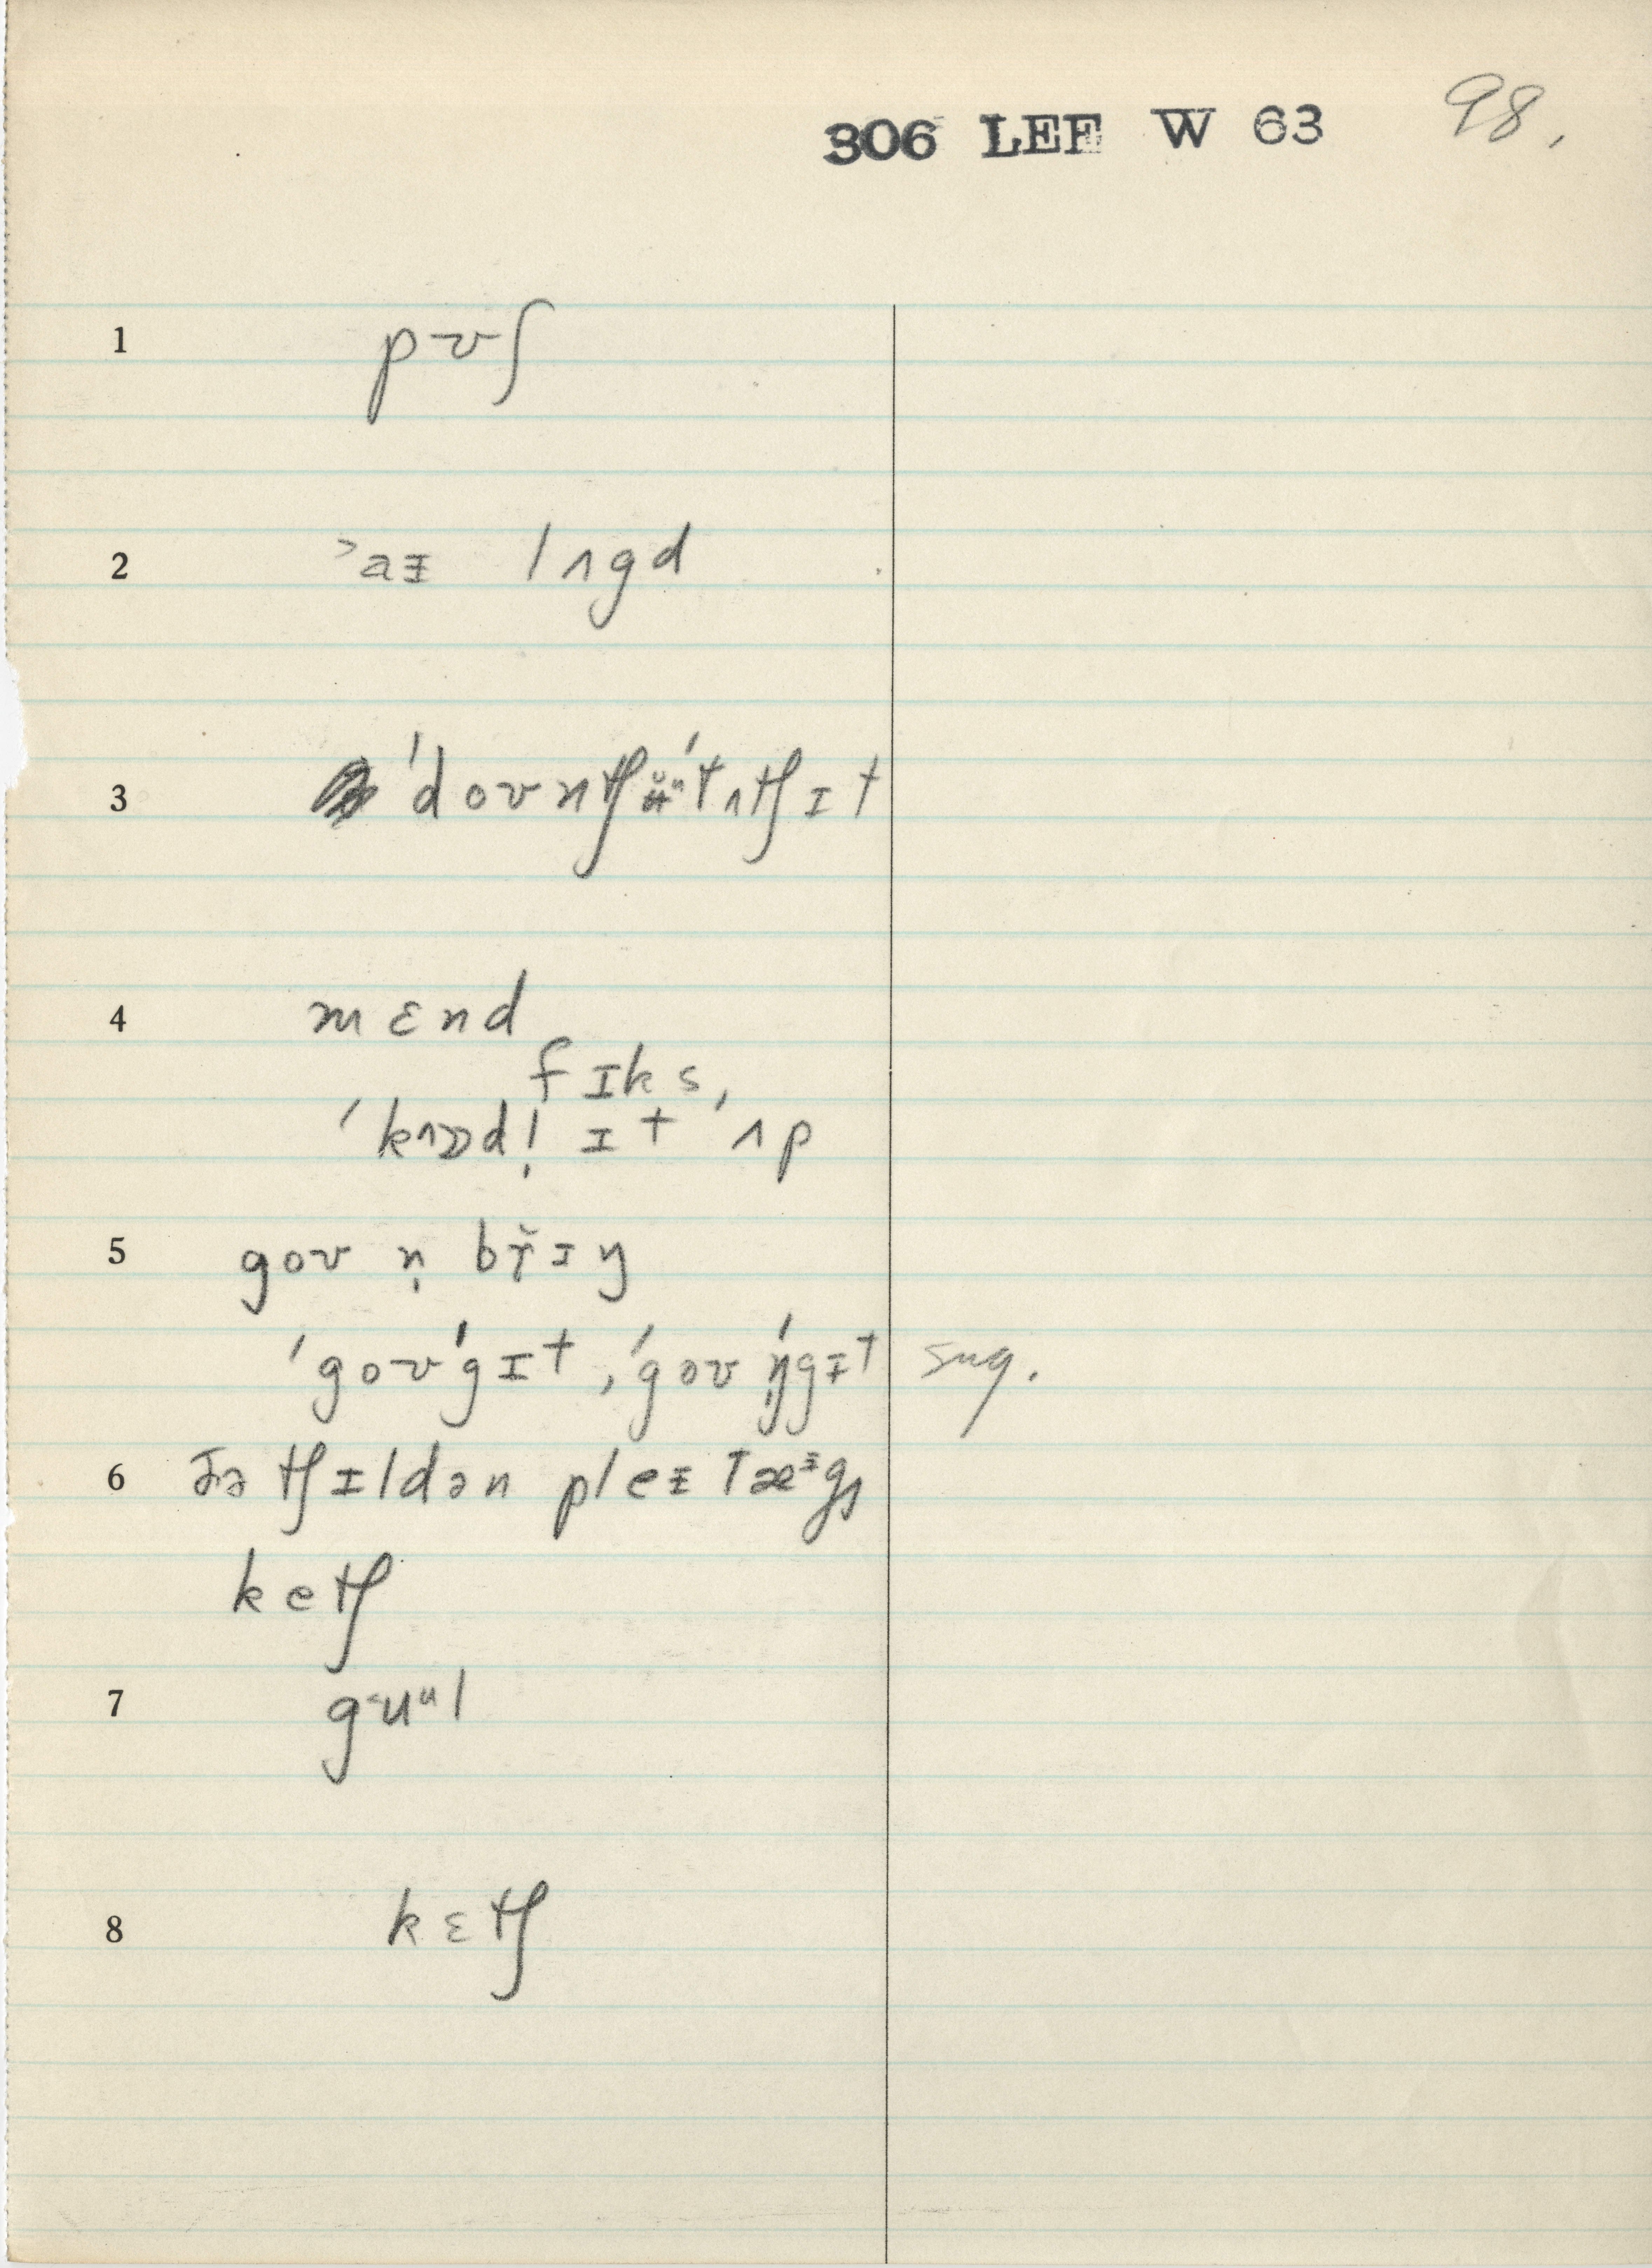 306 LEE W 63 98.
1 pʊʃ
2 ˃aᵻ lʌgd
3 ˈdoʊntʃʉ̆ᵘˈtʌtʃɪt
4 mɛnd
fɪks,
ˈkʌɚdl̩ ɪt ˈʌp
5 goʊ n̩ br̆ɪŋ
ˈgoʊˈgɪt, ˈgoʊ ŋ̍ˈgᵻt sug.
6 ðə tʃɪldən pleᵻ tæᶤg
ketʃ
7 g˂uᵘl
8 kɛtʃ